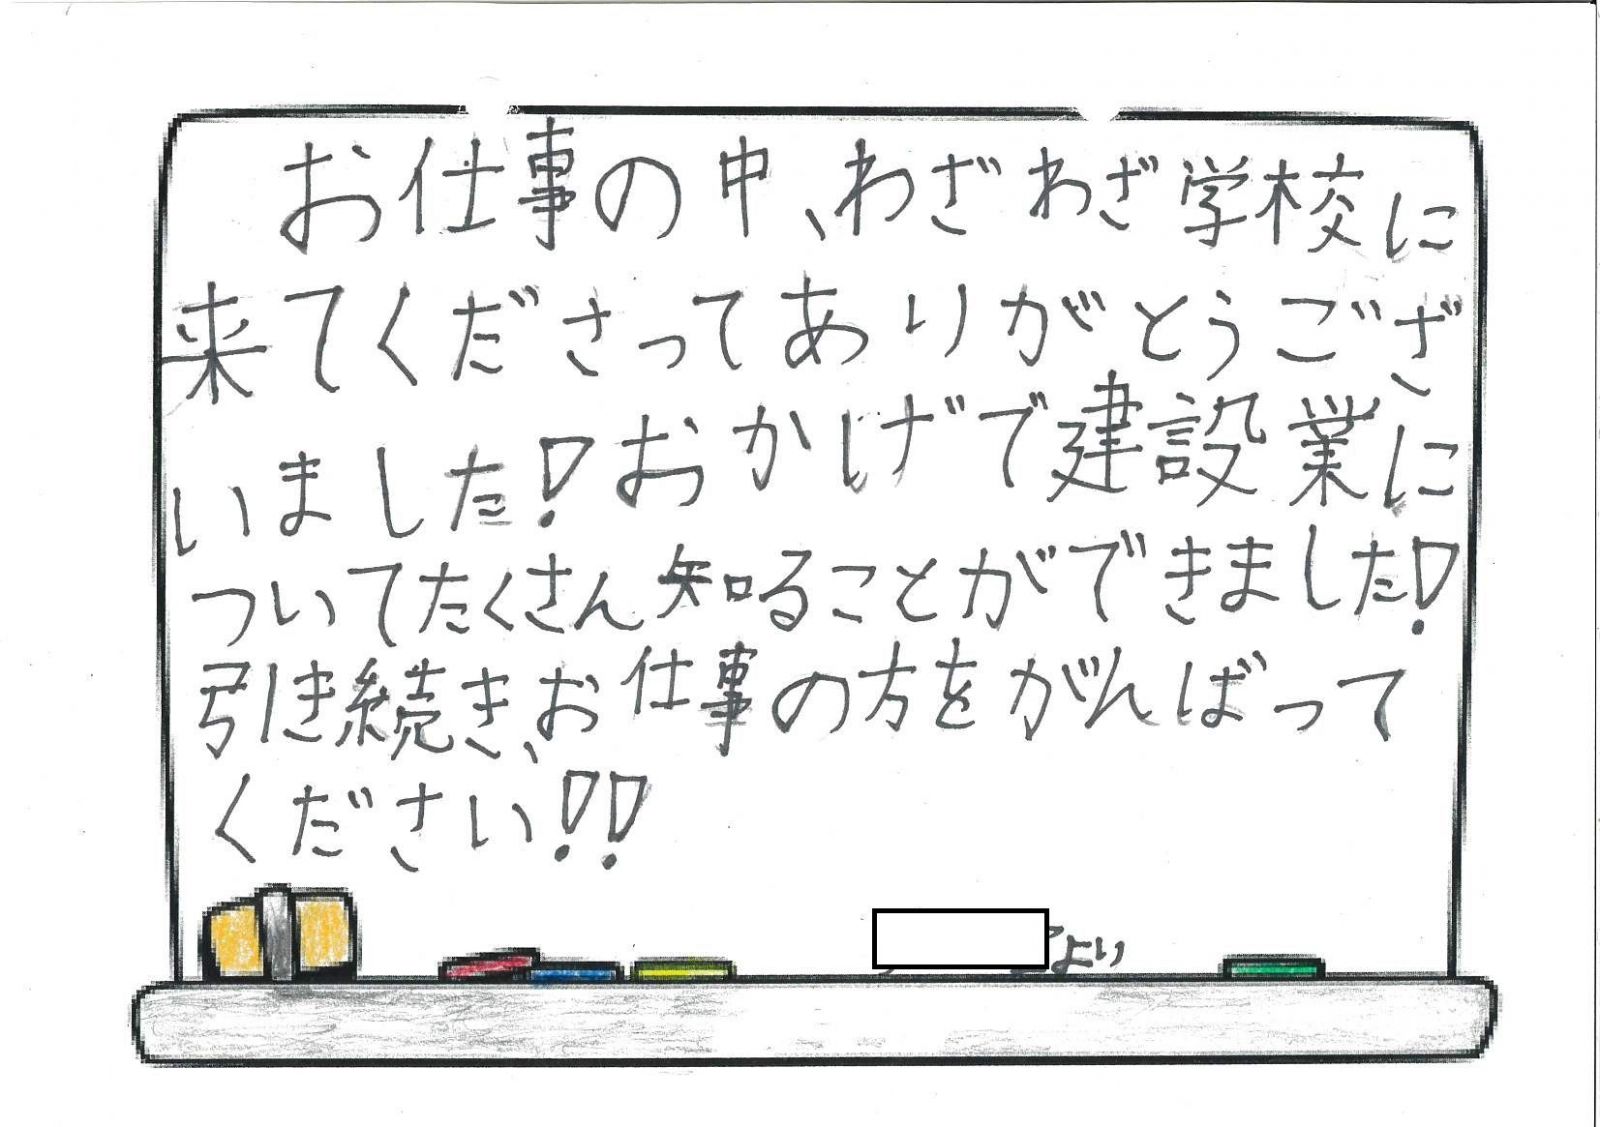 お仕事の中、わざわざ学校に
来てくださってありがとうござ
いました!おかげで建設業に
ついてたくさん知ることができました!
引き続き、お仕事の方をがんばって
ください!!
より